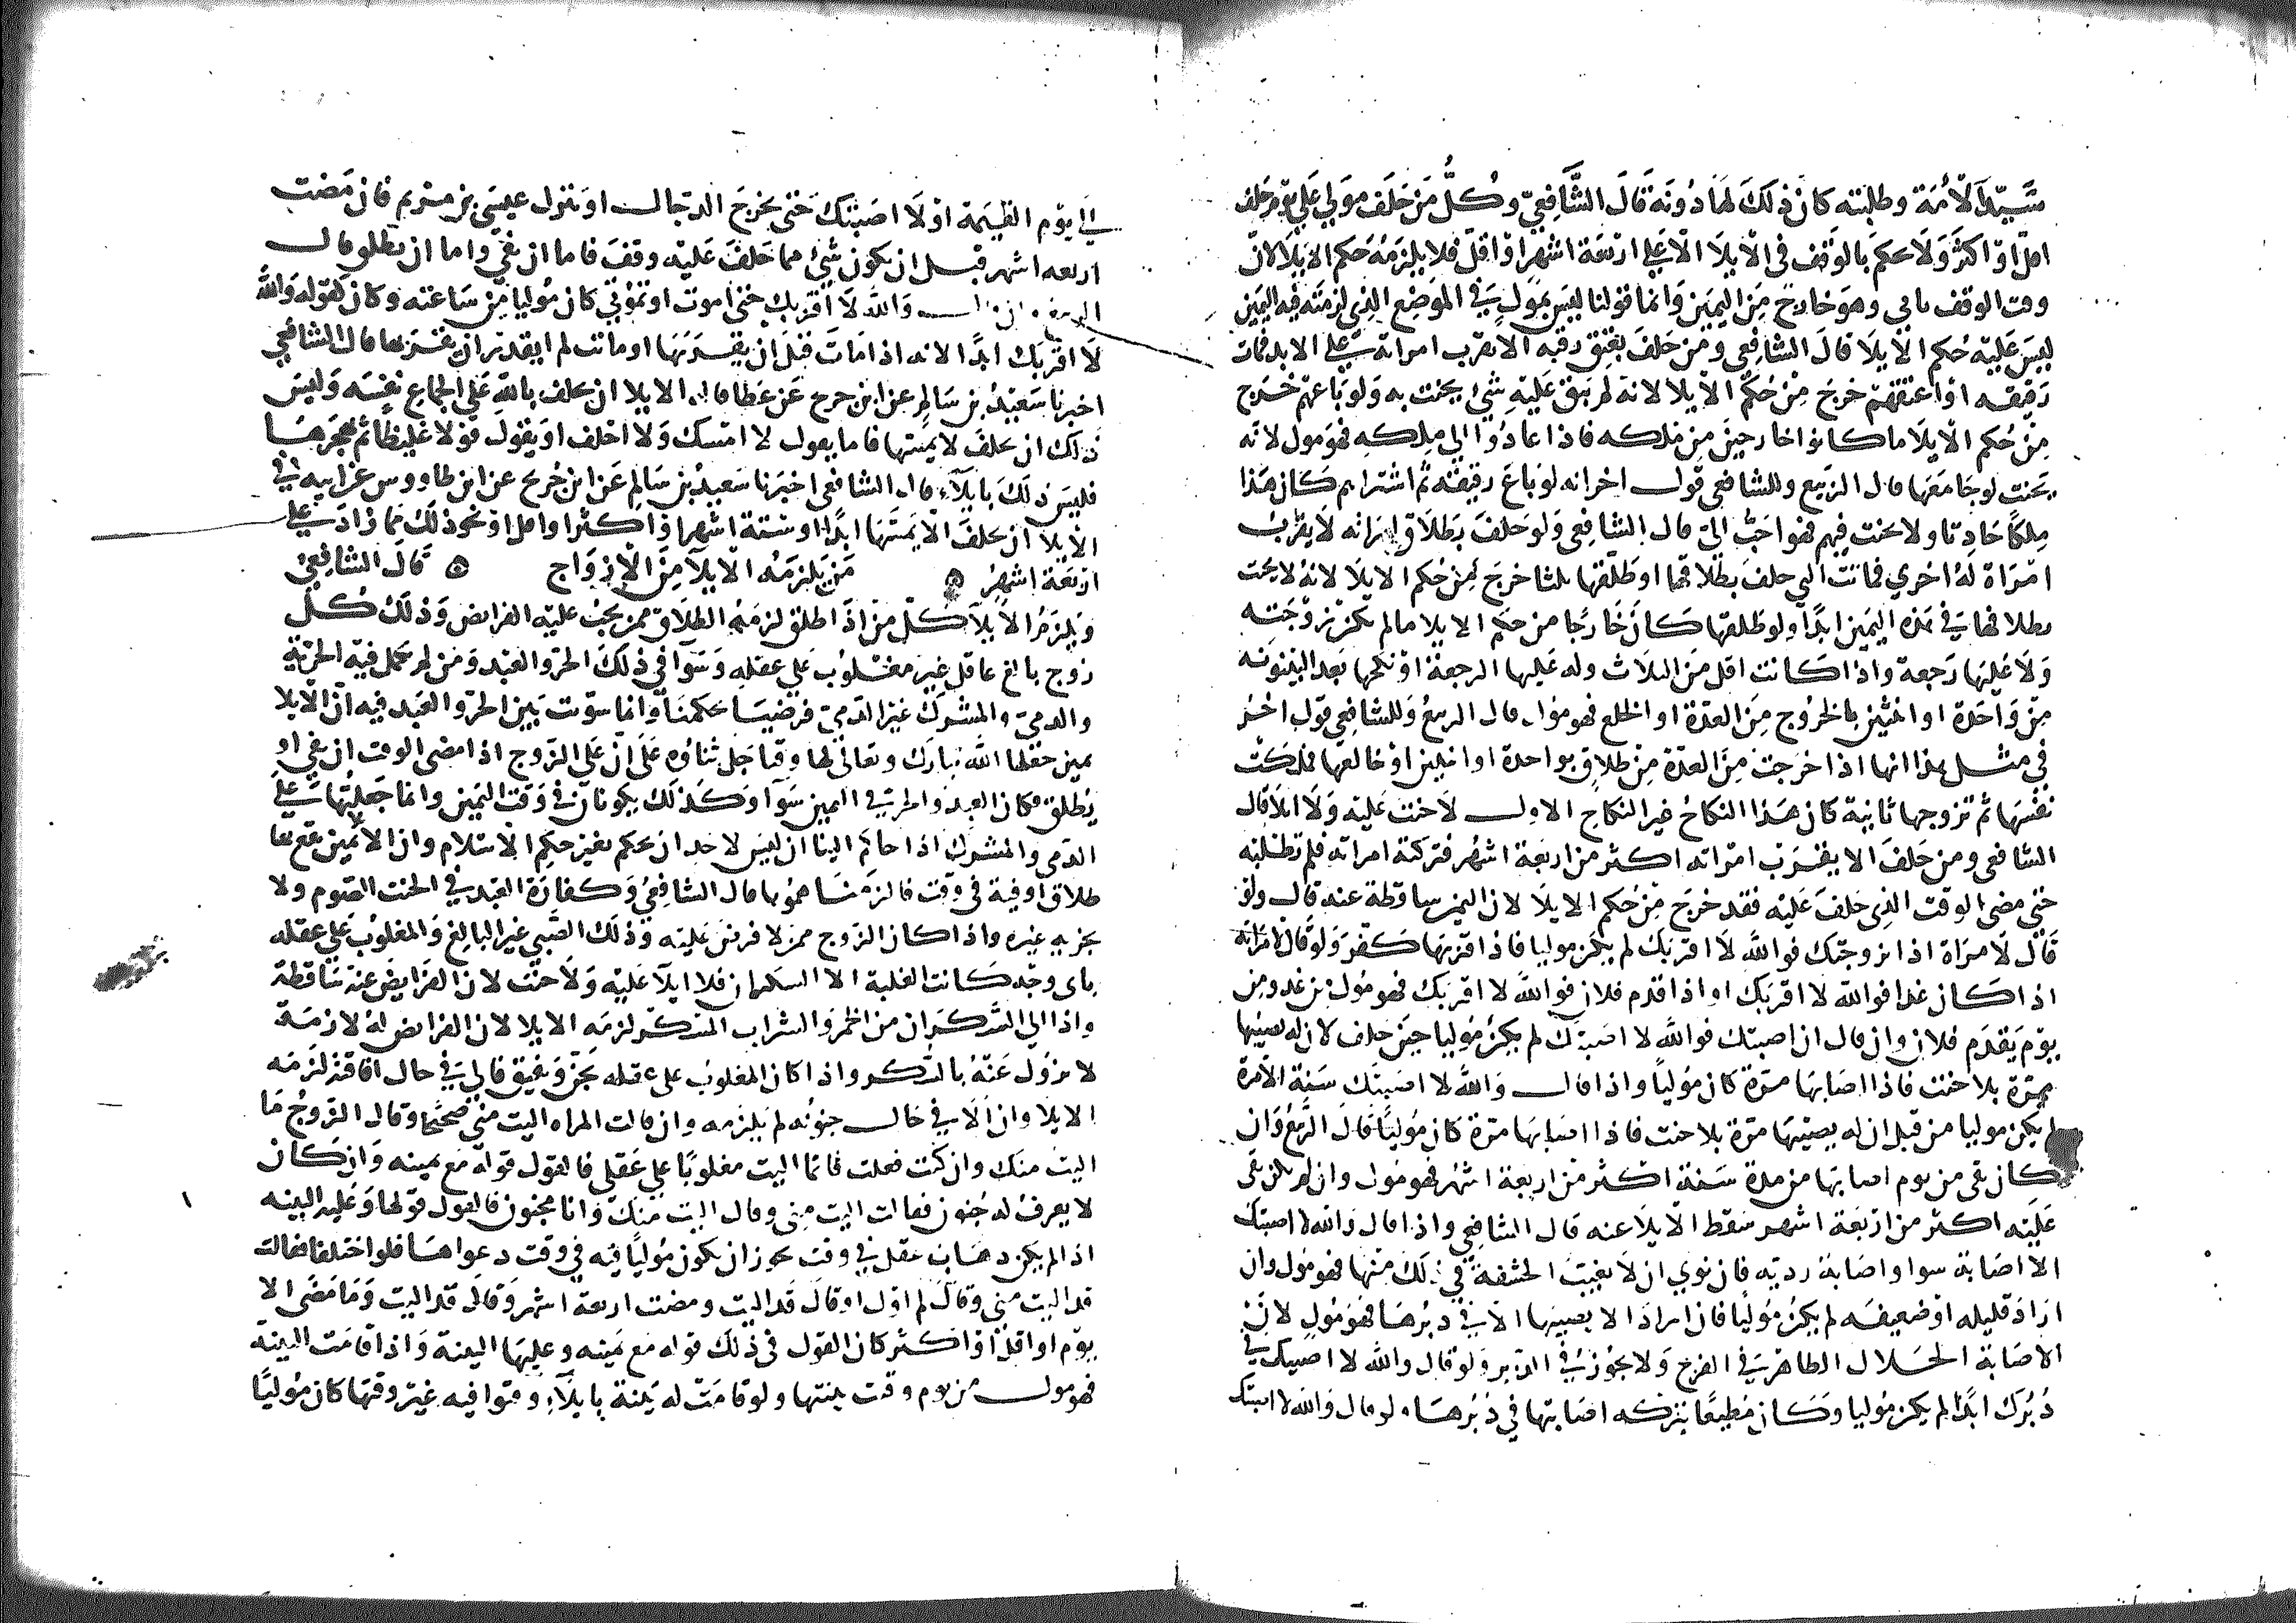 سيد الامة وطلبته كان ذلك لها دونه قال الشافعي وكل من حلف مولي علي يوم حلف
اقل او اكثر ولا حكم بالوقف في الايلا الا علي اربعة اشهر او اقل فلا يلزمه حكم الايلا لان
وقت الوقف ياتي وهو خارج من اليمين وانما قولنا ليس بمول في الموضع الذي لزمته فيه اليمين
ليس عليه حكم الايلا قال الشافعي ومن حلف بعتق رقبه الا يقرب امراته علي الابد فمات
رقيقه او اعتقهم خرج من حكم الايلا لانه لم يبق عليه شي يحنث به ولو باعهم خرج
من حكم الايلا ما كانوا خارجين من ملكه فاذا عادوا الي ملكه فهو مول لانه
يحنث لو جامعها قال الربيع وللشافعي قول اخر انه لو باع رقيقه ثم اشتراهم كان هذا
ملكا حادثا ولا يحنث فيهم فهو احب الي قال الشافعي ولو حلف بطلاق امراته لا يقرب
امراة له اخري فماتت التي حلف بطلاقها او طلقها ثلثا خرج من حكم الايلا لانه لا يحنث
بطلاقها في هذه اليمين ابدا ولو طلقها كان خارجا من حكم الايلا ما لم يكن زوجته
ولا عليها رجعة واذا كانت اقل من الثلاث وله عليها الرجعة او نكحها بعد البينونه
من واحدة او اثنين بالخروج من العدة او الخلع فهو مول قال الربيع وللشافعي قول اخر
في مثل هذا انها اذا خرجت من العدة من طلاق بواحدة او اثنين او خالعها فملكت
نفسها ثم تزوجها ثانية كان هذا النكاح غير النكاح الاول لا حنث عليه ولا ايلا قال
الشافعي ومن حلف الا يقرب امراته اكثر من اربعة اشهر فتركته امراته فلم تطلبه
حتي مضي الوقت الذي حلف عليه فقد خرج من حكم الايلا لان اليمين ساقطة عنه قال ولو
قال لامراة اذا تزوجتك فوالله لا اقربك لم يكن موليا فاذا قربها كفر ولو قال لامراته
اذا كان غدا فوالله لا اقربك او اذا قدم فلان فوالله لا اقربك فهو مول من غد ومن
يوم يقدم فلان وان قال ان اصبتك فوالله لا اصبتك لم يكن موليا حين حلف لان له يصيبها
مرة بلا حنث فاذا اصابها مرة كان موليا واذا قال والله لا اصيبك سنة الا مرة
لم يكن موليا من قبل ان له يصيبها مرة بلا حنث فاذا اصابها مرة كان موليا قال الربيع وان
كان بقي من يوم اصابتها من مدة سنة اكثر من اربعة اشهر فهو مول وان لم يكن بقي
عليه اكثر من اربعة اشهر سقط الايلا عنه قال الشافعي واذا قال والله لا اصبتك
الا اصابة سوا واصابة رديه فان نوي ان لا يغيب الحشفة في ذلك منها فهو مول وان
اراد قليله او ضعيفه لم يكن موليا فان اراد الا يصيبها الا في دبرها فهو مول لان
الاصابة الحلال الظاهر في الفرج ولا يجوز في الدبر ولو قال والله لا اصيبك في
دبرك ابدا لم يكن موليا وكان مطيعا بتركه اصابتها في دبرها ولو قال والله لا اصبتك
الي يوم القيمة او لا اصبتك حتي يخرج الدجال او ينزل عيسي بن مريم فان مضت
اربعه اشهر قبل ان يكون شي مما حلف عليه وقف فاما ان يفي واما ان يطلق قال
الربيع وان قال والله لا اقربك حتي اموت او تموتي كان موليا من ساعته وكان كقوله والله
لا اقربك ابدا لانه اذا مات قبل ان يقربها او ماتت لم يقدر ان يقربها قال الشافعي
اخبرنا سعيد بن سالم عن ابن جريج عن عطا قال الايلا ان يحلف بالله علي الجماع نفسه وليس
ذلك ان يحلف لا يمسها فاما يقول لا امسك ولا احلف او يقول قولا غليظا ثم يهجرها
فليس ذلك بايلآء قال الشافعي اخبرنا سعيد بن سالم عن ابن جريج عن ابن طاووس عن ابيه في
الايلا ان يحلف الا يمسها ابدا او ستة اشهر او اكثر او اقل او نحو ذلك مما زاد علي
اربعة اشهر ۞ من يلزمه الايلا من الازواج ۞ قال الشافعي
ويلزم الايلا كل من اذا طلق لزمه الطلاق ممن يجب عليه الفرايض وذلك كل
زوج بالغ عاقل غير مغلوب علي عقله وسوآ في ذلك الحر والعبد ومن لم تكمل فيه الحرية
والذمي والمشرك غير الذمي فرضيا حكمنا وانما سوت بين الحر والعبد فيه ان الايلا
يمين جعلها الله تبارك وتعالي لها وقتا جل ثناوه علي ان علي الزوج اذا مضي الوقت ان يفي او
يطلق فكان العبد والحر في اليمين سوآ وكذلك يكونان في وقت اليمين وانما جعلتها علي
الذمي والمشرك اذا حاكم الينا ان ليس لاحد ان يحكم بغير حكم الاسلام وان الايمين يقع بها
طلاق او فية في وقت فالزمناهموها قال الشافعي وكفارة العبد في الحنث الصوم ولا
يجزيه غيره واذا كان الزوج ممن لا فرض عليه وذلك الصبي غير البالغ والمغلوب علي عقله
باي وجه كانت الغلبة الا السكران فلا ايلآ عليه ولا حنث لان الفرايض عنه ساقطة
واذا الي السكران من الخمر والشراب المسكر لزمه الايلا لان الفرايض له لازمة
لا تزول عنه بالسكر واذا كان المغلوب علي عقله يجن ويفيق فالي في حال افاقته لزمه
الايلا وان الا في حال جنونه لم يلزمه وان قالت المراه اليت مني صحيحا وقال الزوج ما
اليت منك وان كنت فعلت فانما اليت مغلوبا علي عقلي فالقول قوله مع يمينه وان كان
لا يعرف له جنون فقالت اليت مني وقال اليت منك وانا مجنون فالقول قولها وعليه البينه
اذا لم يكن ذهاب عقل في وقت يجوز ان يكون موليا فيه في وقت دعواها فلو اختلفا فقالت
قد اليت مني وقال لم اول او قال قد اليت ومضت اربعة اشهر وقال قد اليت وما مضي الا
يوم او اقل او اكثر كان القول في ذلك قوله مع يمينه وعليها البينة واذا قامت البينة
فهو مول من يوم وقت بينتها ولو قامت له بينة بايلآء وقتوا فيه غير وقتها كان موليا